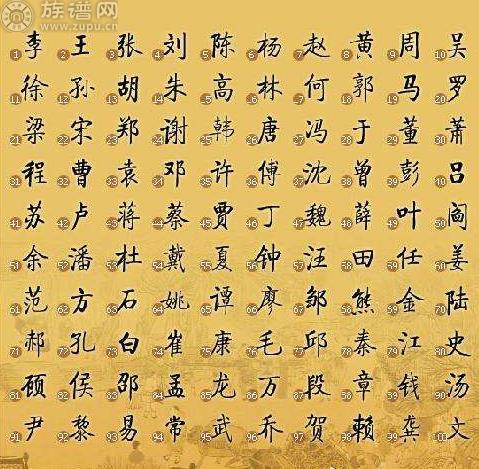 族谱网
www.zupu.cn
1李 2王 3张 4刘 5陈 6杨 7赵 8黄 9周 10吴
11徐 12孙 13胡 14朱 15高 16林 17何 18郭 19马 20罗
21梁 22宋 23郑 24谢 25韩 26唐 27冯 28于 29董 30萧
31程 32曹 33袁 34邓 35许 36傅 37沈 38曾 39彭 40吕
41苏 42卢 43蒋 44蔡 45贾 46丁 47魏 48薛 49叶 50阎
51余 52潘 53杜 54戴 55夏 56钟 57汪 58田 59任 60姜
61范 62方 63石 64姚 65谭 66廖 67邹 68熊 69金 70陆
71郝 72孔 73白 74崔 75康 76毛 77邱 78秦 79江 80史
81顾 82侯 83邵 84孟 85龙 86万 87段 88章 89钱 90汤
91尹 92黎 93易 94常 95武 96乔 97贺 98赖 99龚 100文